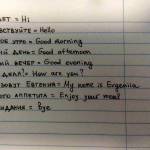 ВЕТ = Hi
ВСТВУЙТЕ = Hello
ОЕ УТРО = Good morning
ЫЙ ДЕНЬ = Good afternoon
ЫЙ ВЕЧЕР = Good evening
ДЕЛА? = How are you?
ЗОВУТ ЕВГЕНИЯ = My name is Evgeniia
ОГО АППЕТИТА = Enjoy your meal
ИДАНИЯ = Bye